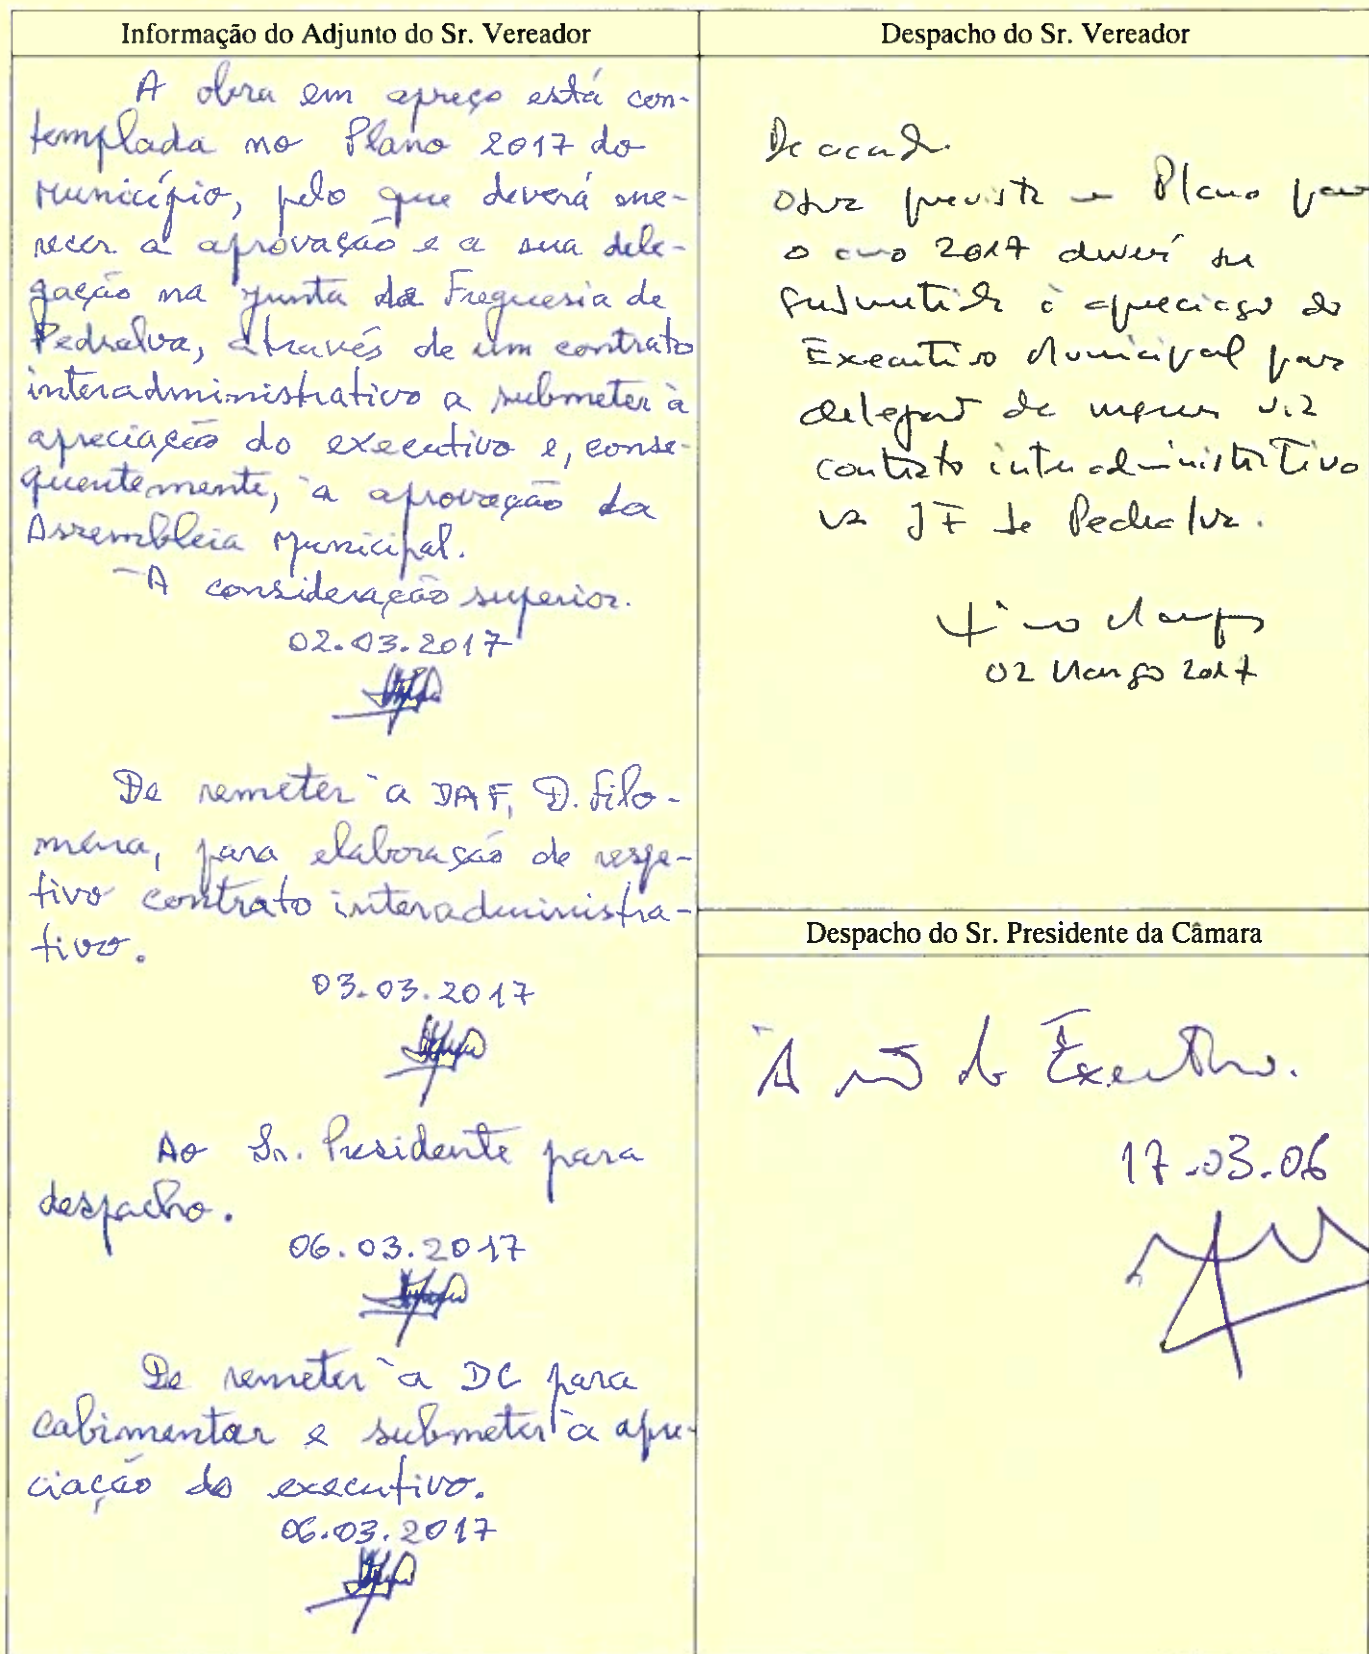 Informação do Adjunto do Sr. Vereador
A obra em apreço está con-
templada no Plano 2017 do
Município, pelo que deverá me-
recer a aprovação e a sua dele-
gação na Junta da Freguesia de
Pedralva, através de um contrato
interadministrativo a submeter à
apreciação do executivo e, conse-
quentemente, à aprovação da
Assembleia Municipal.
À consideração superior.
02.03.2017
De remeter à DAF, D. Filo-
mena, para elaboração de respe-
tivo contrato interadministra-
tivo.
03.03.2017
Ao Sr. Presidente para
despacho.
06.03.2017
De remeter à DC para
cabimentar e submeter à apre-
ciação do executivo.
06.03.2017
Despacho do Sr. Vereador
De acordo.
Obra prevista em Plano para
o ano 2017 deverá ser
submetida à apreciação do
Executivo Municipal para
delegação da mesma via
contrato interadministrativo
na JF de Pedralva.
02 Março 2017
Despacho do Sr. Presidente da Câmara
À do Executivo.
17-03-06